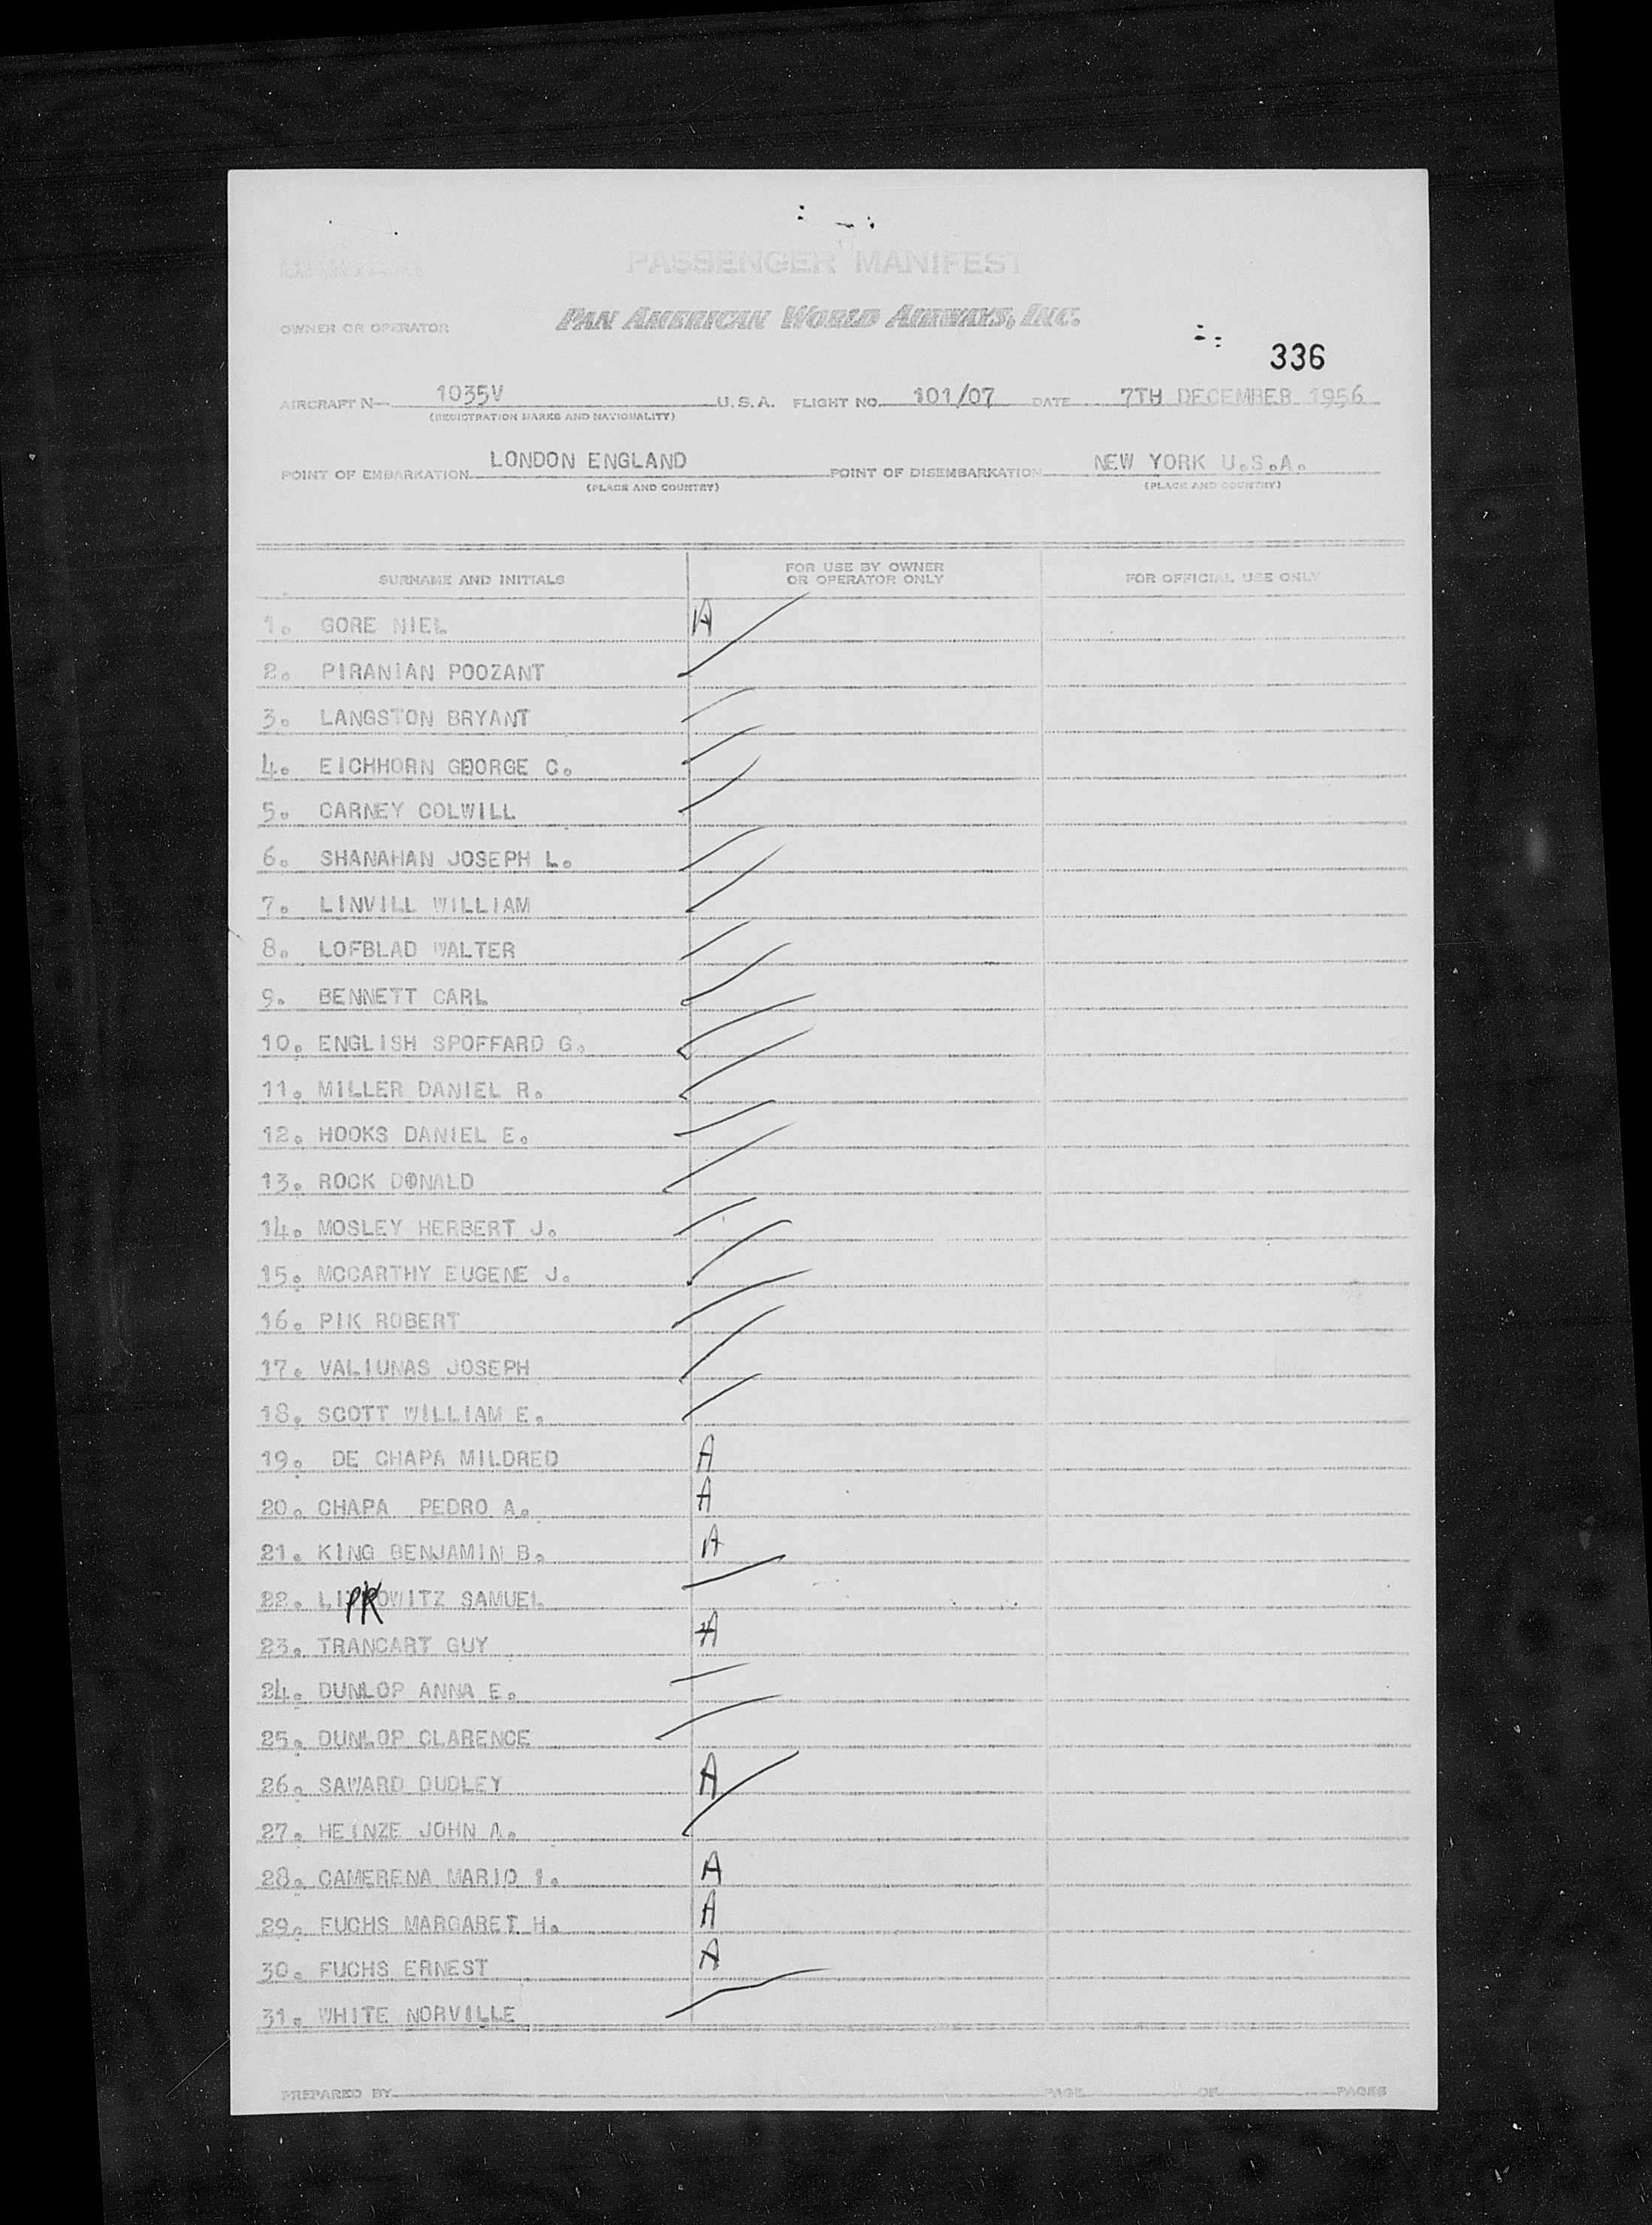 PASSENGER MANIFEST
OWNER OR OPERATOR PAN AMERICAN WORLD AIRWAYS, INC.
336
AIRCRAFT N— 1035V U.S.A. FLIGHT NO. 101/07 DATE 7TH DECEMBER 1956
(REGISTRATION MARKS AND NATIONALITY)
POINT OF EMBARKATION LONDON ENGLAND POINT OF DISEMBARKATION NEW YORK U.S.A.
(PLACE AND COUNTRY) (PLACE AND COUNTRY)
SURNAME AND INITIALS FOR USE BY OWNER OR OPERATOR ONLY FOR OFFICIAL USE ONLY
1. GORE NIEL A
2. PIRANIAN POOZANT
3. LANGSTON BRYANT
4. EICHHORN GEORGE C.
5. CARNEY COLWILL
6. SHANAHAN JOSEPH L.
7. LINVILL WILLIAM
8. LOFBLAD WALTER
9. BENNETT CARL
10. ENGLISH SPOFFARD G.
11. MILLER DANIEL R.
12. HOOKS DANIEL E.
13. ROCK DONALD
14. MOSLEY HERBERT J.
15. MCCARTHY EUGENE J.
16. PIK ROBERT
17. VALIUNAS JOSEPH
18. SCOTT WILLIAM E.
19. DE CHAPA MILDRED A
20. CHAPA PEDRO A. A
21. KING BENJAMIN B. A
22. LIPKOWITZ SAMUEL
23. TRANCART GUY A
24. DUNLOP ANNA E.
25. DUNLOP CLARENCE
26. SAWARD DUDLEY A
27. HEINZE JOHN A.
28. CAMERENA MARIO I. A
29. FUCHS MARGARET H. A
30. FUCHS ERNEST A
31. WHITE NORVILLE
PREPARED BY PAGE OF PAGES